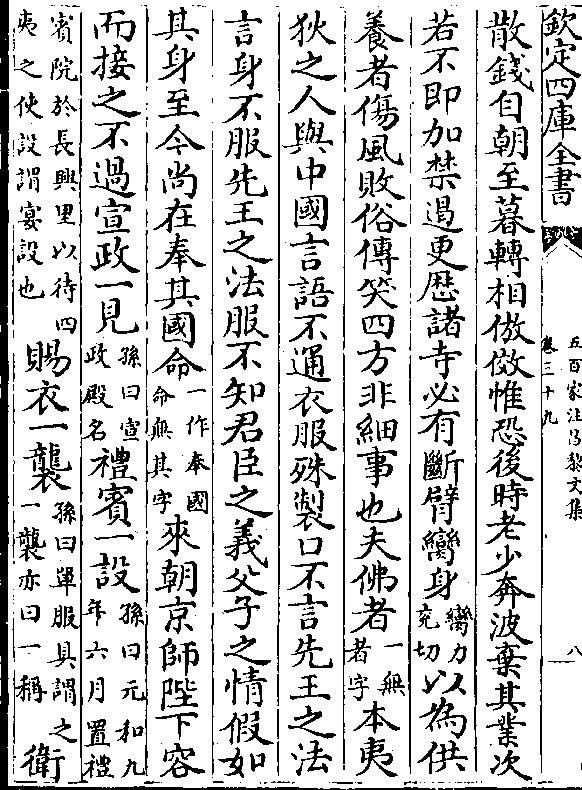 欽定四庫全書
五百家注昌黎文集
卷三十九
八
散錢自朝至暮轉相倣傚惟恐後時老少奔波棄其業次
若不即加禁遏更歷諸寺必有斷臂臠身臠力兖切以為供
養者傷風敗俗傳笑四方非細事也夫佛者一無者字本夷
狄之人與中國言語不通衣服殊製口不言先王之法
言身不服先王之法服不知君臣之義父子之情假如
其身至今尚在奉其國命一作奉國命無其字來朝京師陛下容
而接之不過宣政一見孫曰宣政殿名禮賓一設孫曰元和九年六月置禮
賓院於長興里以待四夷之使設謂宴設也賜衣一襲孫曰單服具謂之一襲亦曰一稱衛